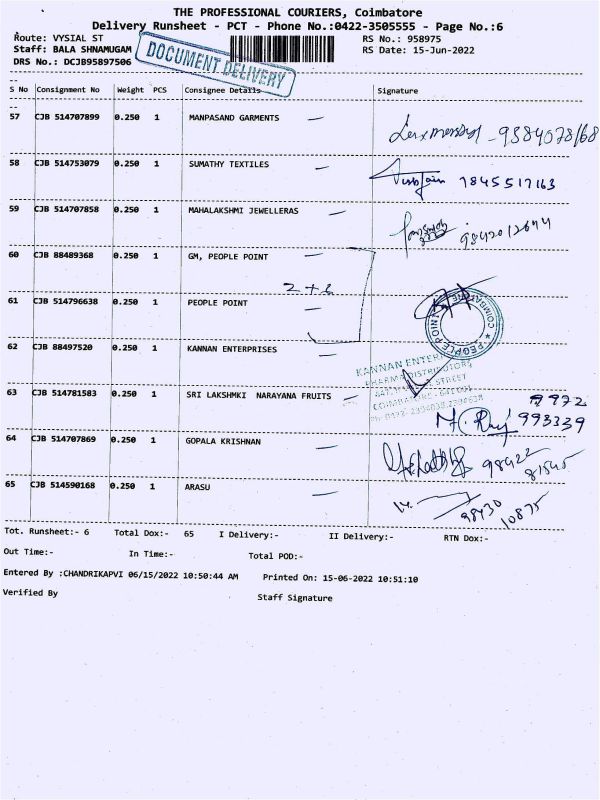 THE PROFESSIONAL COURIERS, Coimbatore
Delivery Runsheet - PCT - Phone No.:0422-3505555 - Page No.:6
Route: VYSIAL ST RS No.: 958975
Staff: BALA SHNAMUGAM RS Date: 15-Jun-2022
DRS No.: DCJB95897506
DOCUMENT DELIVERY
S No Consignment No Weight PCS Consignee Details Signature
57 CJB 514707899 0.250 1 MANPASAND GARMENTS
58 CJB 514753079 0.250 1 SUMATHY TEXTILES 7845517163
59 CJB 514707858 0.250 1 MAHALAKSHMI JEWELLERAS
60 CJB 88489368 0.250 1 GM, PEOPLE POINT
61 CJB 514796638 0.250 1 PEOPLE POINT
PEOPLE POINT COIMBATORE
62 CJB 88497520 0.250 1 KANNAN ENTERPRISES
KANNAN
PHARMA DISTRIBUTORS
STREET
63 CJB 514781583 0.250 1 SRI LAKSHMKI NARAYANA FRUITS
993339
64 CJB 514707869 0.250 1 GOPALA KRISHNAN
65 CJB 514590168 0.250 1 ARASU
98430
10875
Tot. Runsheet:- 6 Total Dox:- 65 I Delivery:- II Delivery:- RTN Dox:-
Out Time:- In Time:- Total POD:-
Entered By :CHANDRIKAPVI 06/15/2022 10:50:44 AM Printed On: 15-06-2022 10:51:10
Verified By Staff Signature